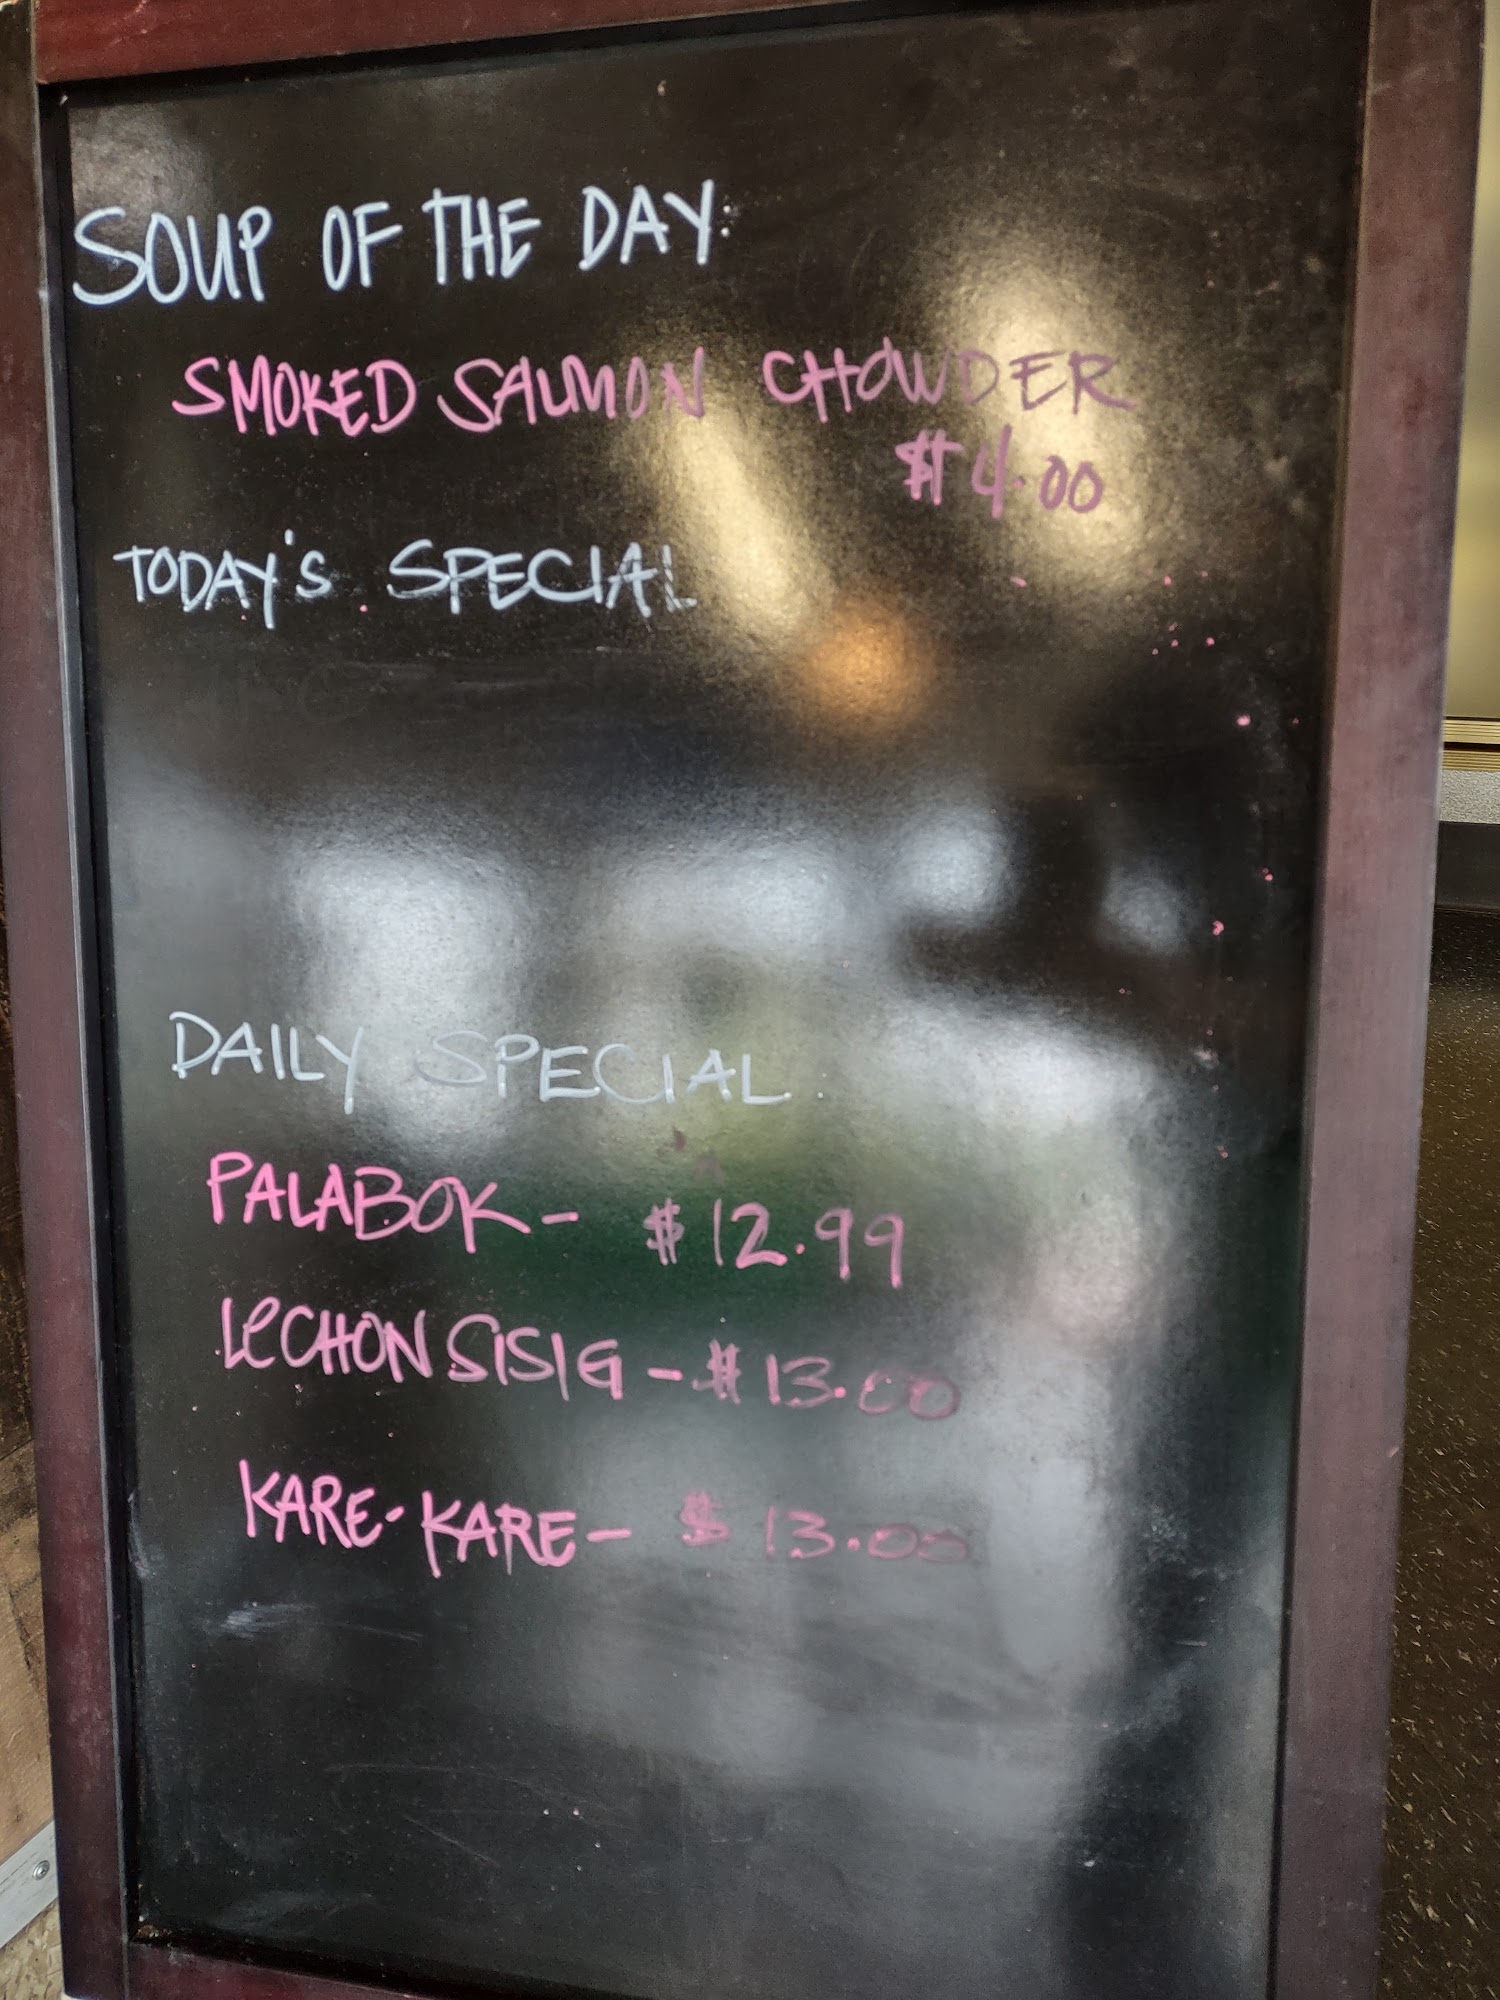 SOUP OF THE DAY:
SMOKED SALMON CHOWDER
$4.00
TODAY'S SPECIAL
DAILY SPECIAL
PALABOK - $12.99
LECHON SISIG - $13.00
KARE-KARE - $13.00